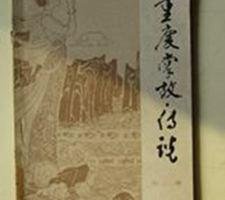 重庆掌故·传说